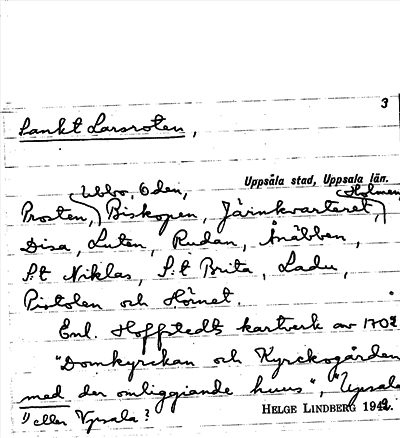 3
Sankt Larsroten,
Uppsala stad, Uppsala län.
Ubbo, Oden,
Holmen,
Prosten, Biskopen, Järinkvarteret,
Disa, Luten, Rudan, Snäbben,
S:t Niklas, S:t Brita, Ladu,
Pistolen och Hörnet.
Enl. Hoffstedts kartverk av 1702
"Domkyrckan och Kyrckogården
med der omliggiande huus", ¹⁾Upsala
¹⁾ eller Vpsala?
HELGE LINDBERG 1942.